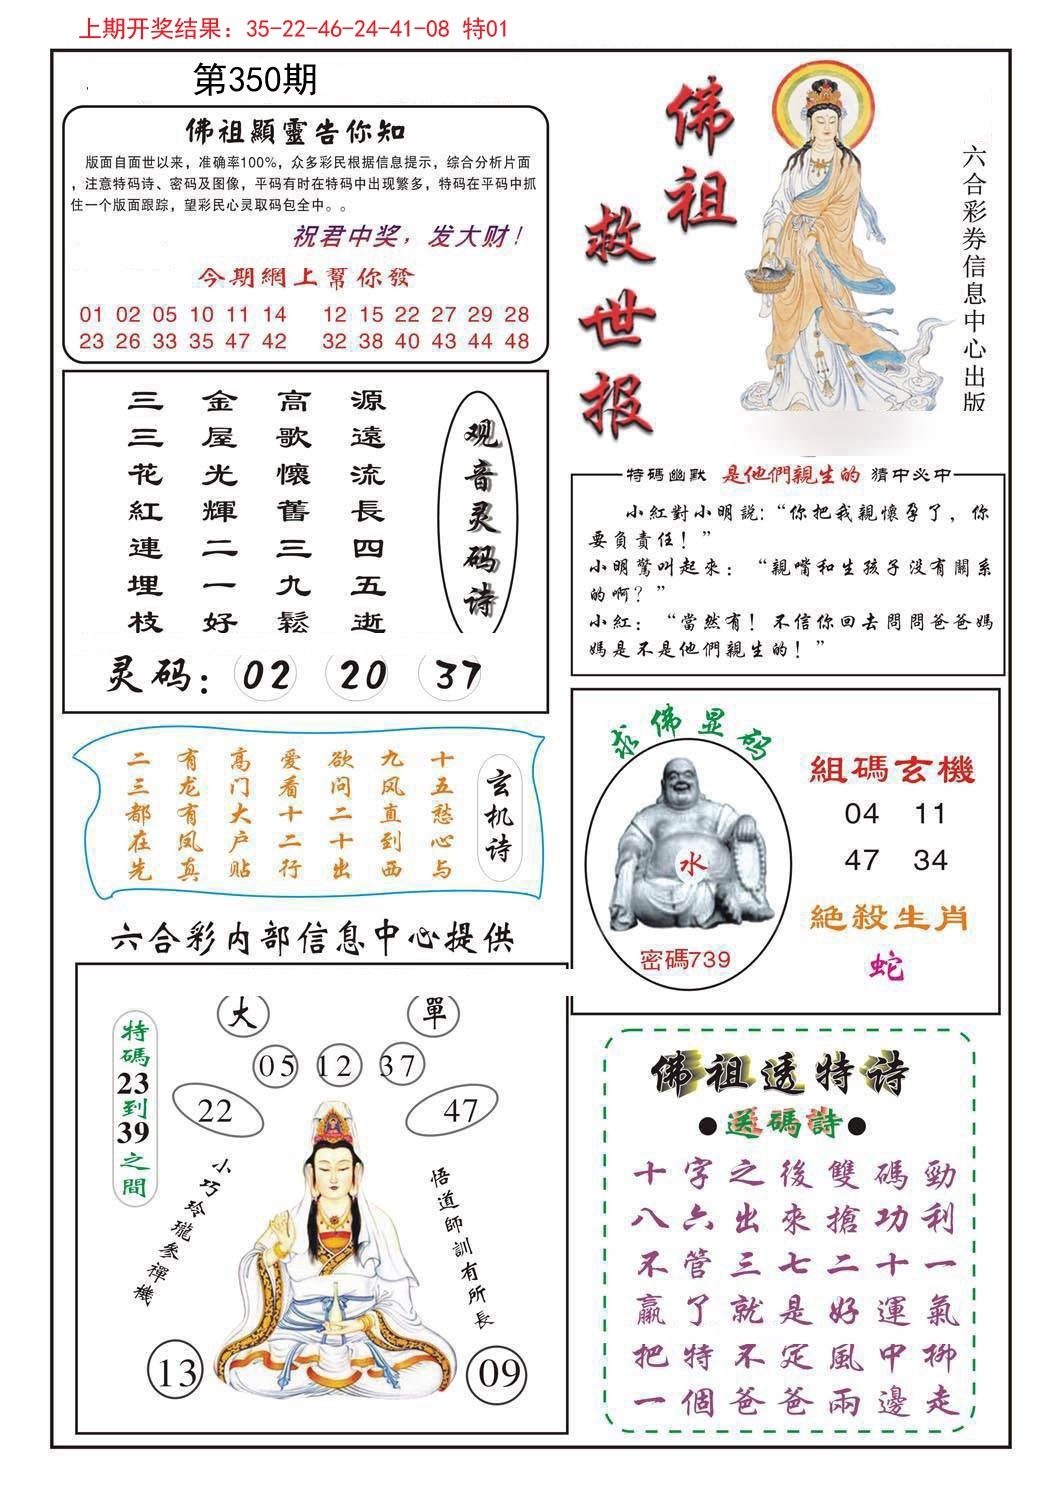 上期开奖结果：35-22-46-24-41-08 特01
第350期
佛祖顯靈告你知
版面自面世以来，准确率100%，众多彩民根据信息提示，综合分析片面
，注意特码诗、密码及图像，平码有时在特码中出现繁多，特码在平码中抓
住一个版面跟踪，望彩民心灵取码包全中。。
祝君中奖，发大财！
今期網上幫你發
01 02 05 10 11 14 12 15 22 27 29 28
23 26 33 35 47 42 32 38 40 43 44 48
佛祖
救世报
六合彩券信息中心出版
观音灵码诗
源遠流長四五逝
高歌懷舊三九鬆
金屋光輝二一好
三三花紅連埋枝
灵码：02 20 37
特码幽默 是他們親生的 猜中必中
小紅對小明說：“你把我親懷孕了，你
要負責任！”
小明驚叫起來：“親嘴和生孩子没有關系
的啊？”
小紅：“當然有！不信你回去問問爸爸媽
媽是不是他們親生的！”
玄机诗
十五愁心与
九风直到西
欲问二十出
爱看十二行
高门大户贴
有龙有凤真
二三都在先
求佛显码
水
密碼739
組碼玄機
04 11
47 34
絶殺生肖
蛇
六合彩内部信息中心提供
大 單
05 12 37
22 47
特碼23到39之間
小巧玲瓏參禪機
悟道師訓有所長
13 09
佛祖透特诗
●送碼詩●
十字之後雙碼勁
八六出來搶功利
不管三七二十一
赢了就是好運氣
把特不定風中柳
一個爸爸兩邊走